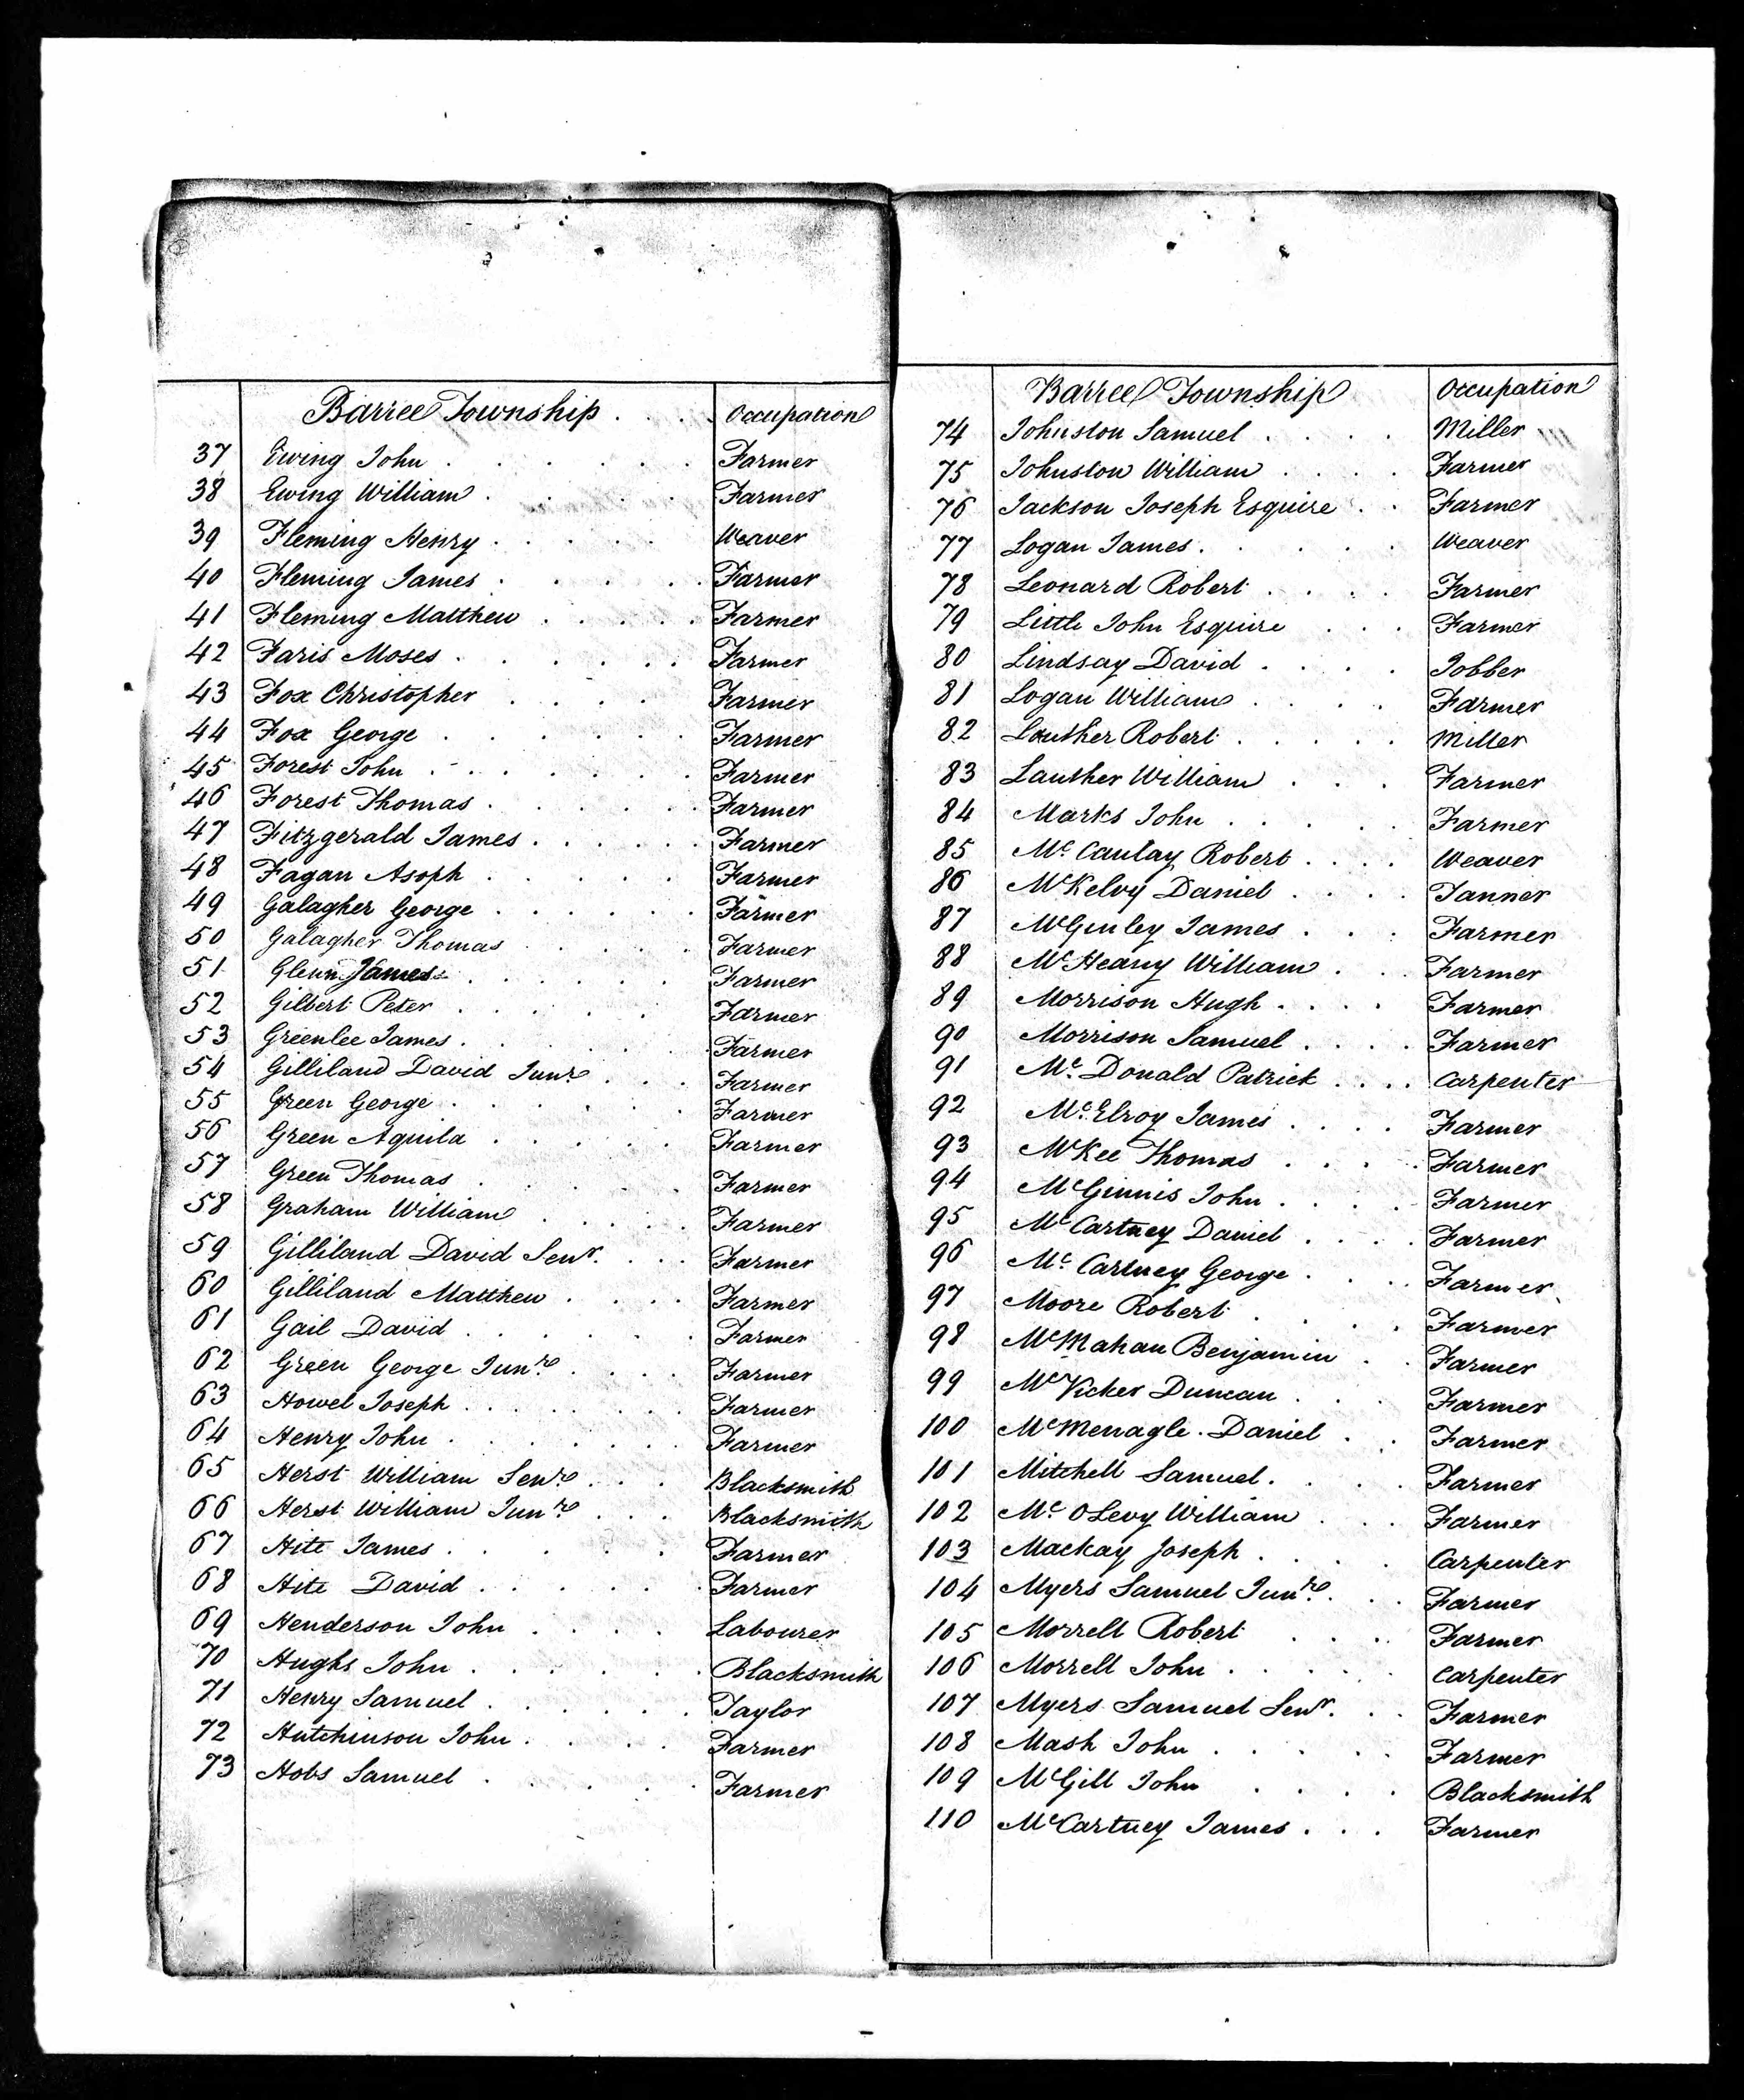 Barree Township . . . . Occupation
37 Ewing John . . . . . . Farmer
38 Ewing William . . . . . Farmer
39 Fleming Henry . . . . . Weaver
40 Fleming James . . . . . Farmer
41 Fleming Matthew . . . . . Farmer
42 Faris Moses . . . . . . Farmer
43 Fox Christopher . . . . Farmer
44 Fox George . . . . . . Farmer
45 Forest John . . . . . . . Farmer
46 Forest Thomas . . . . . . Farmer
47 Fitzgerald James . . . . . . Farmer
48 Fagan Asoph . . . . . Farmer
49 Galagher George . . . . . . Farmer
50 Galagher Thomas . . . . . Farmer
51 Glenn James . . . . . . Farmer
52 Gilbert Peter . . . . . Farmer
53 Greenlee James . . . . . . Farmer
54 Gilliland David Junre . . . Farmer
55 Green George . . . . . . Farmer
56 Green Aquila . . . . . Farmer
57 Green Thomas . . . . . Farmer
58 Graham William . . . . . Farmer
59 Gilliland David Senr. . . . Farmer
60 Gilliland Matthew . . . . Farmer
61 Gail David . . . . . . Farmer
62 Green George Junre . . . . Farmer
63 Howel Joseph . . . . . . . Farmer
64 Henry John . . . . . . . Farmer
65 Herst William Senre . . . Blacksmith
66 Herst William Junre . . . Blacksmith
67 Hite James . . . . . Farmer
68 Hite David . . . . . . Farmer
69 Henderson John . . . . Labourer
70 Hughs John . . . . . . Blacksmith
71 Henry Samuel . . . . . . Taylor
72 Hutchinson John . . . . Farmer
73 Hobs Samuel . . . . . Farmer
Barree Township Occupation
74 Johnston Samuel . . . . Miller
75 Johnston William . . . . Farmer
76 Jackson Joseph Esquire . . Farmer
77 Logan James . . . . . Weaver
78 Leonard Robert . . . . Farmer
79 Little John Esquire . . . Farmer
80 Lindsay David . . . . Jobber
81 Logan William . . . . Farmer
82 Lauther Robert . . . . . Miller
83 Lauther William . . . Farmer
84 Marks John . . . . . Farmer
85 Mc. Caulay Robert . . . . Weaver
86 McKelvy Daniel . . . . Tanner
87 McGinley James . . . Farmer
88 McHeany William . . . Farmer
89 Morrison Hugh . . . . Farmer
90 Morrison Samuel . . . . Farmer
91 Mc. Donald Patrick . . . . Carpenter
92 Mc. Elroy James . . . . Farmer
93 McKee Thomas . . . . Farmer
94 McGinnis John . . . . Farmer
95 McCartney Daniel . . . . Farmer
96 Mc. Cartney George . . . . Farmer
97 Moore Robert . . . . Farmer
98 McMahan Benjamin . . Farmer
99 McVicker Duncan . . . Farmer
100 McMenagle Daniel . . Farmer
101 Mitchell Samuel . . . . Farmer
102 Mc. OLevy William . . . Farmer
103 Mackay Joseph . . . . Carpenter
104 Myers Samuel Junre . . . Farmer
105 Morrell Robert . . . Farmer
106 Morrell John . . . . . Carpenter
107 Myers Samuel Senr. . . Farmer
108 Mash John . . . . . Farmer
109 McGill John . . . . Blacksmith
110 McCartney James . . . Farmer